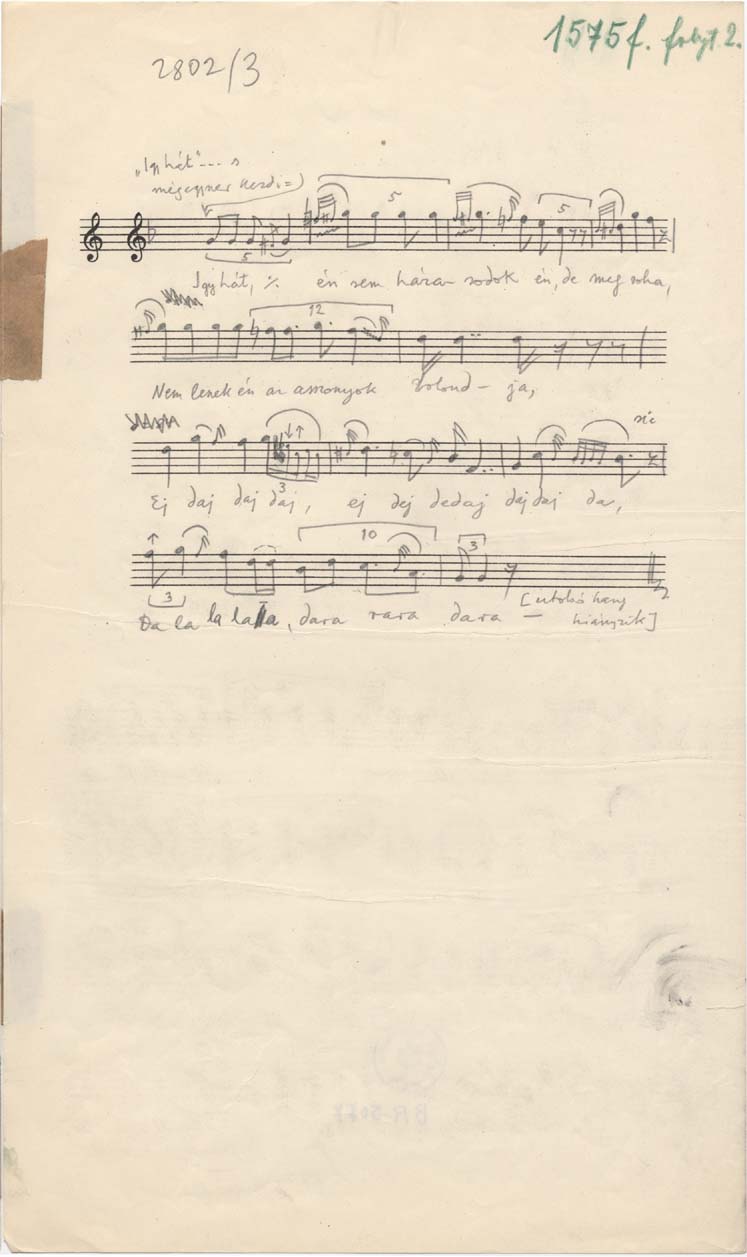 1575 f. folyt. 2.
2802/3
"Így hát" --- s
mégegyszer kezdi =)
5
5
5
Így hát, ·/. én sem háza- sodok én, de meg soha,
12
Nem leszek én az asszonyok bolond - ja,
sic
3
Ej daj daj daj, ej dej dedaj daj daj da,
10
3
3
[utolsó hang
Da la la lalla, dara rara dara — hiányzik]